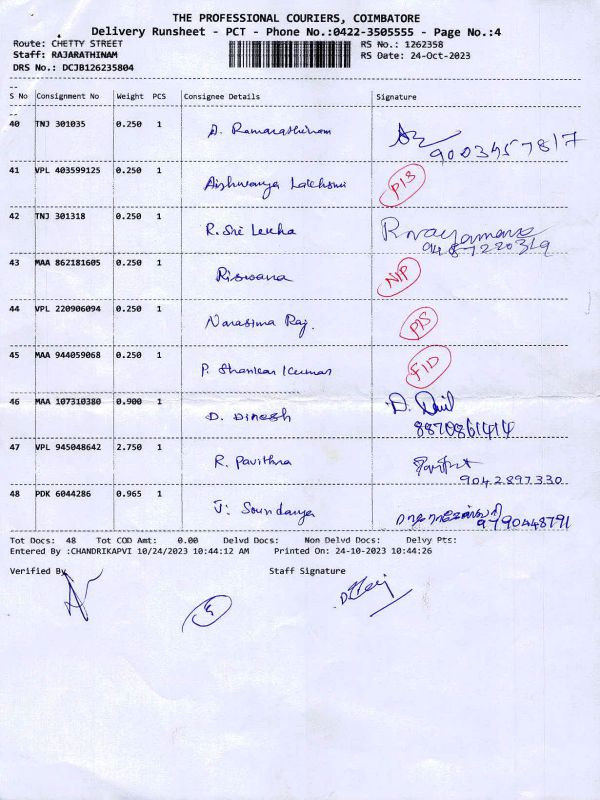 THE PROFESSIONAL COURIERS, COIMBATORE
Delivery Runsheet - PCT - Phone No.:0422-3505555 - Page No.:4
Route: CHETTY STREET RS No.: 1262358
Staff: RAJARATHINAM RS Date: 24-Oct-2023
DRS No.: DCJB126235804
S No Consignment No Weight PCS Consignee Details Signature
40 TNJ 301035 0.250 1 A. Ramarathinam
9003457817
41 VPL 403599125 0.250 1 Aishwarya Lakshmi PIS
42 TNJ 301318 0.250 1 R. Sri Lekha
9487220319
43 MAA 862181605 0.250 1 Riswana NIP
44 VPL 220906094 0.250 1 Narasima Raj. PIS
45 MAA 944059068 0.250 1 P. Shankar Kumar FID
46 MAA 107310380 0.900 1 D. Dinesh
8870861414
47 VPL 945048642 2.750 1 R. Pavithra
9042897330
48 PDK 6044286 0.965 1 J. Soundarya
9790448791
Tot Docs: 48 Tot COD Amt: 0.00 Delvd Docs: Non Delvd Docs: Delvy Pts:
Entered By :CHANDRIKAPVI 10/24/2023 10:44:12 AM Printed On: 24-10-2023 10:44:26
Verified By Staff Signature